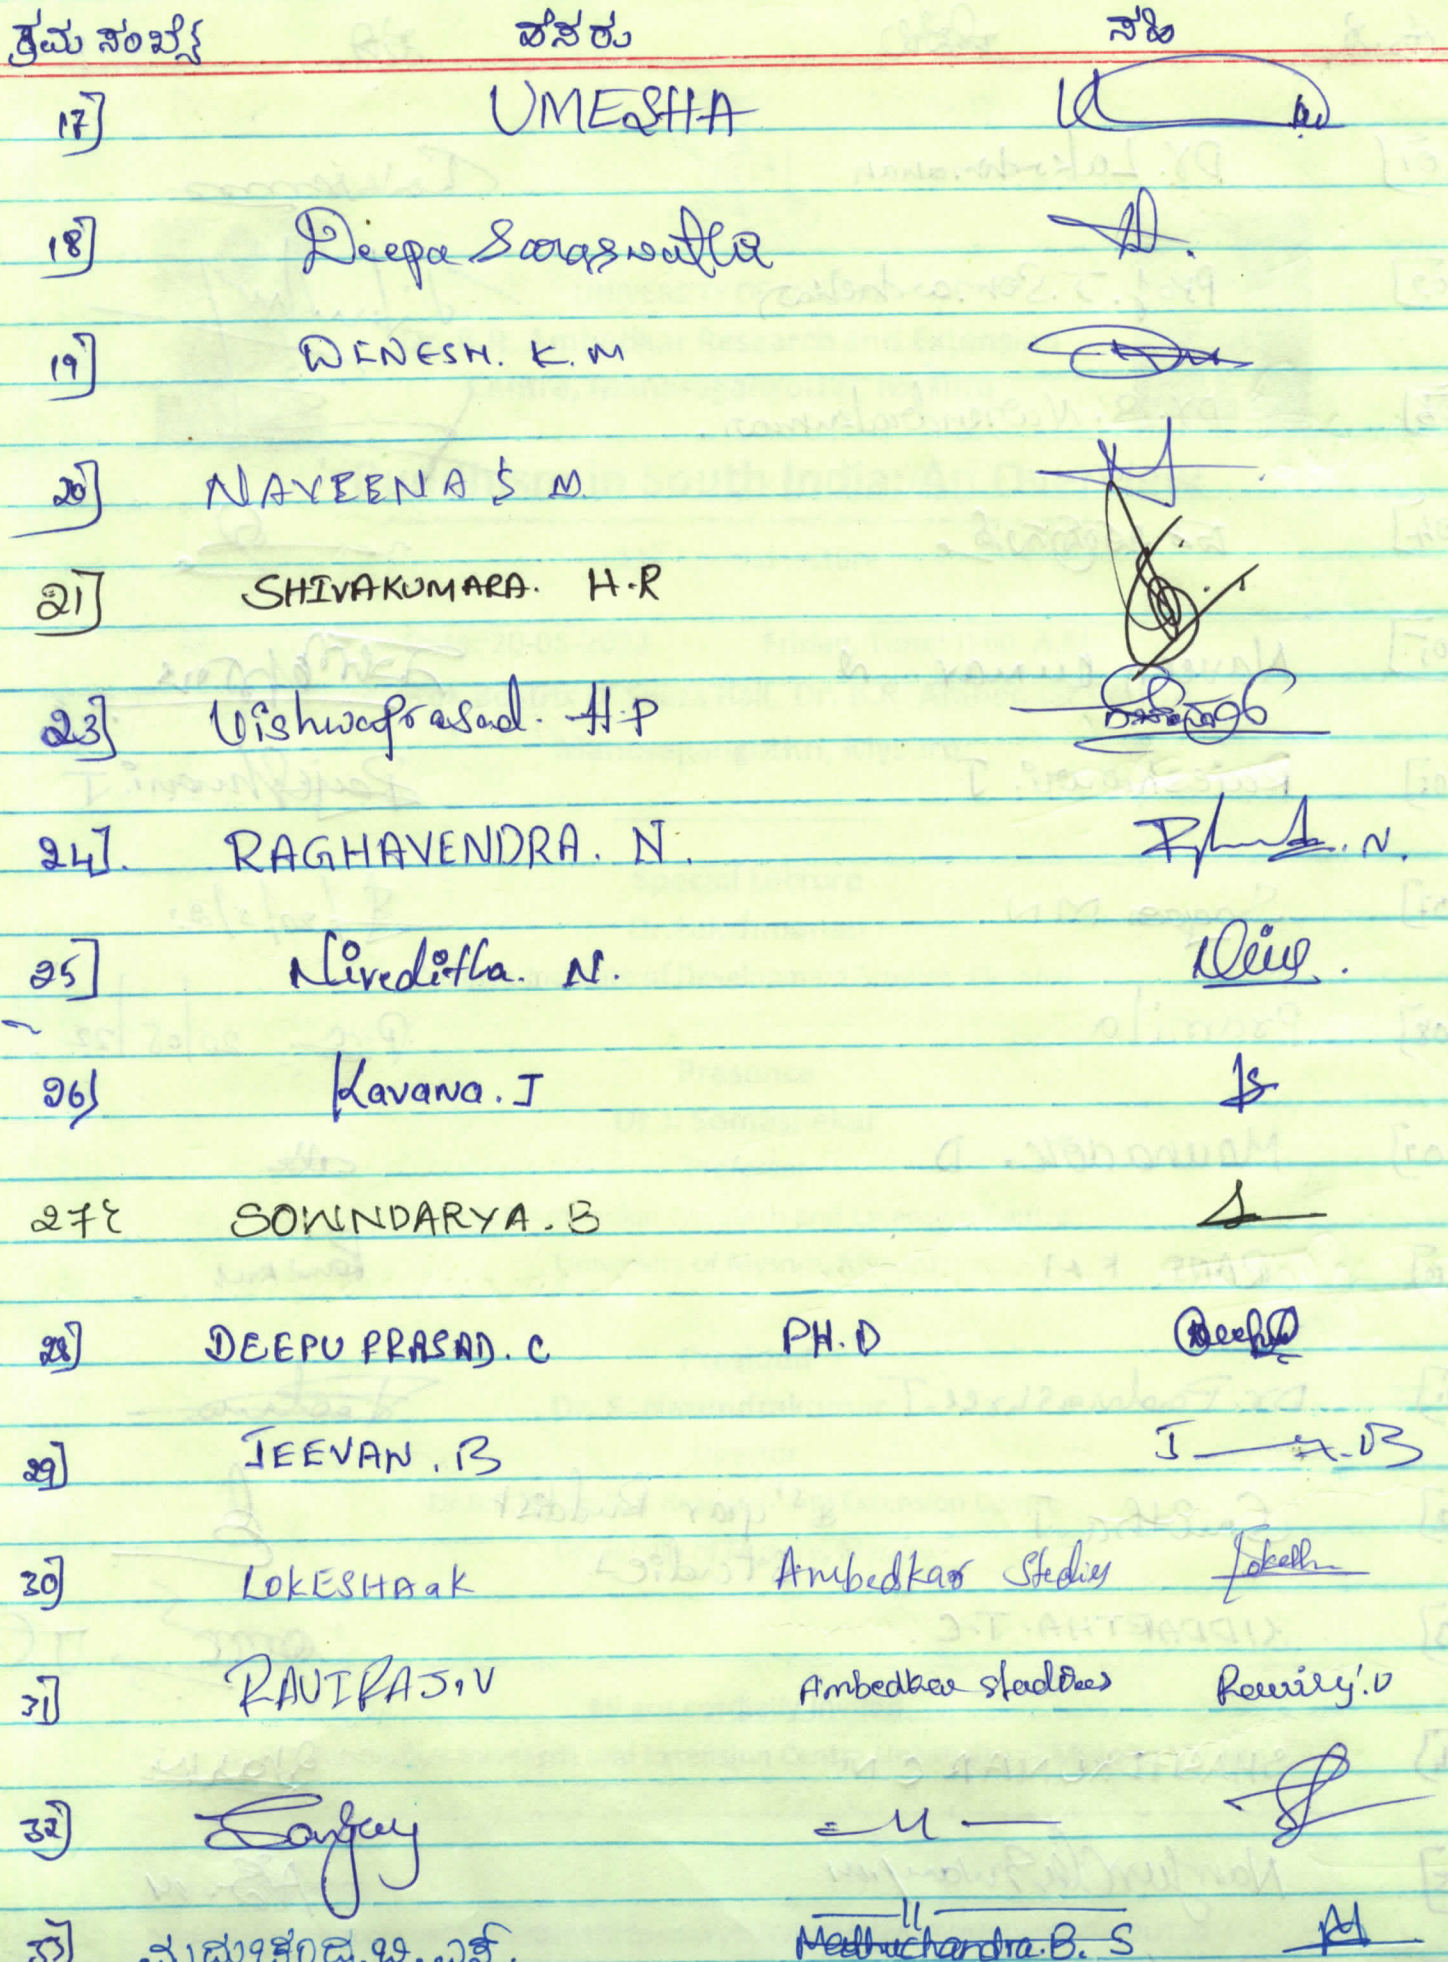 ಕ್ರಮ ಸಂಖ್ಯೆ ಹೆಸರು ಸಹಿ
17] UMESHA
18] Deepa Saraswathi
19] DINESH. K. M
20] NAVEENA S M
21] SHIVAKUMARA. H.R
23] Vishwaprasad. H.P
24]. RAGHAVENDRA. N. N.
25] Niveditha. N.
26] Kavana. J
27] SOWNDARYA. B
28] DEEPU PRASAD. C PH.D Deepu
29] JEEVAN. B J B
30] LOKESHA K Ambedkar Studies Lokesh
31] RAVIRAJ. V Ambedkar studies Raviraj. V
32] Sanjay — 11 —
33] ಮಧುಚಂದ್ರ. ಬಿ. ಎಸ್. — 11 — Madhuchandra. B. S